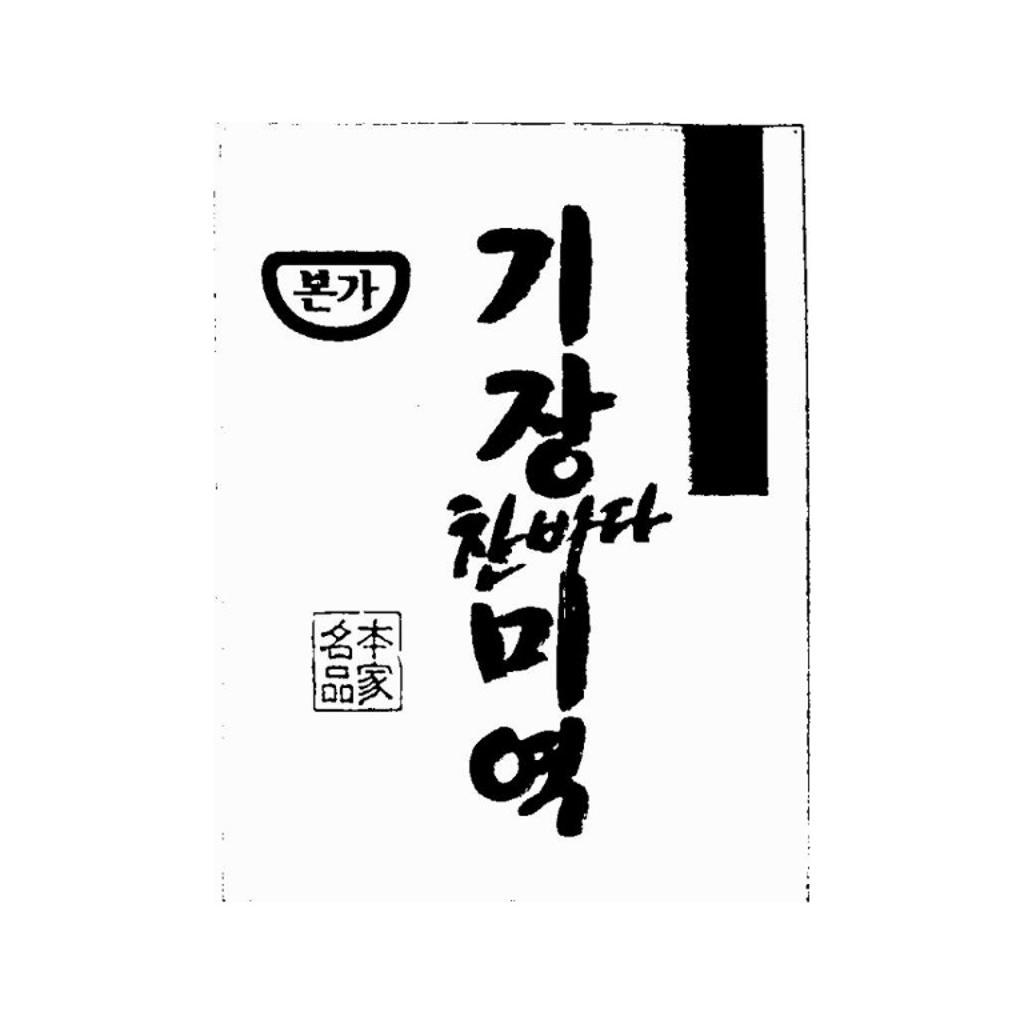 본가
기장
찬바다
미역
本家
名品